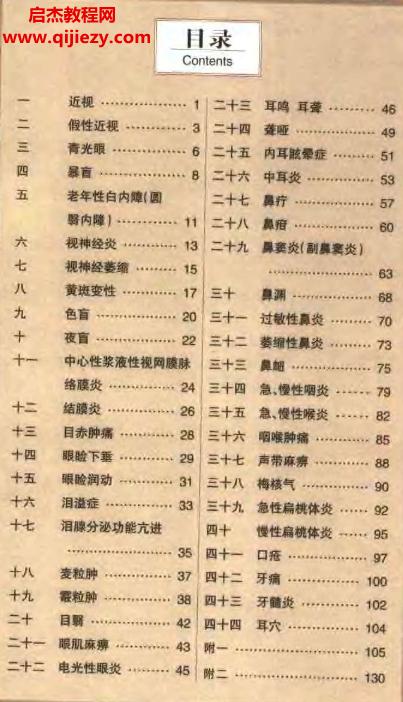 启杰教程网
www.qijiezy.com
目录
Contents
一 近视 ⋯⋯⋯⋯ 1
二 假性近视 ⋯⋯⋯⋯ 3
三 青光眼 ⋯⋯⋯⋯ 6
四 暴盲 ⋯⋯⋯⋯ 8
五 老年性白内障(圆
翳内障) ⋯⋯⋯⋯ 11
六 视神经炎 ⋯⋯⋯⋯ 13
七 视神经萎缩 ⋯⋯⋯⋯ 15
八 黄斑变性 ⋯⋯⋯⋯ 17
九 色盲 ⋯⋯⋯⋯ 20
十 夜盲 ⋯⋯⋯⋯ 22
十一 中心性浆液性视网膜脉
络膜炎 ⋯⋯⋯⋯ 24
十二 结膜炎 ⋯⋯⋯⋯ 26
十三 目赤肿痛 ⋯⋯⋯⋯ 28
十四 眼睑下垂 ⋯⋯⋯⋯ 29
十五 眼睑润动 ⋯⋯⋯⋯ 31
十六 泪溢症 ⋯⋯⋯⋯ 33
十七 泪腺分泌功能亢进
⋯⋯⋯⋯ 35
十八 麦粒肿 ⋯⋯⋯⋯ 37
十九 霰粒肿 ⋯⋯⋯⋯ 38
二十 目翳 ⋯⋯⋯⋯ 42
二十一 眼肌麻痹 ⋯⋯⋯⋯ 43
二十二 电光性眼炎 ⋯⋯⋯⋯ 45
二十三 耳鸣 耳聋 ⋯⋯⋯⋯ 46
二十四 聋哑 ⋯⋯⋯⋯ 49
二十五 内耳眩晕症 ⋯⋯⋯⋯ 51
二十六 中耳炎 ⋯⋯⋯⋯ 53
二十七 鼻疔 ⋯⋯⋯⋯ 57
二十八 鼻疳 ⋯⋯⋯⋯ 60
二十九 鼻窦炎(副鼻窦炎)
⋯⋯⋯⋯ 63
三十 鼻渊 ⋯⋯⋯⋯ 68
三十一 过敏性鼻炎 ⋯⋯⋯⋯ 70
三十二 萎缩性鼻炎 ⋯⋯⋯⋯ 73
三十三 鼻衄 ⋯⋯⋯⋯ 75
三十四 急、慢性咽炎 ⋯⋯ 79
三十五 急、慢性喉炎 ⋯⋯ 82
三十六 咽喉肿痛 ⋯⋯⋯⋯ 85
三十七 声带麻痹 ⋯⋯⋯⋯ 88
三十八 梅核气 ⋯⋯⋯⋯ 90
三十九 急性扁桃体炎 ⋯⋯ 92
四十 慢性扁桃体炎 ⋯⋯ 95
四十一 口疮 ⋯⋯⋯⋯ 97
四十二 牙痛 ⋯⋯⋯⋯ 100
四十三 牙髓炎 ⋯⋯⋯⋯ 102
四十四 耳穴 ⋯⋯⋯⋯ 104
附一 ⋯⋯⋯⋯ 105
附二 ⋯⋯⋯⋯ 130